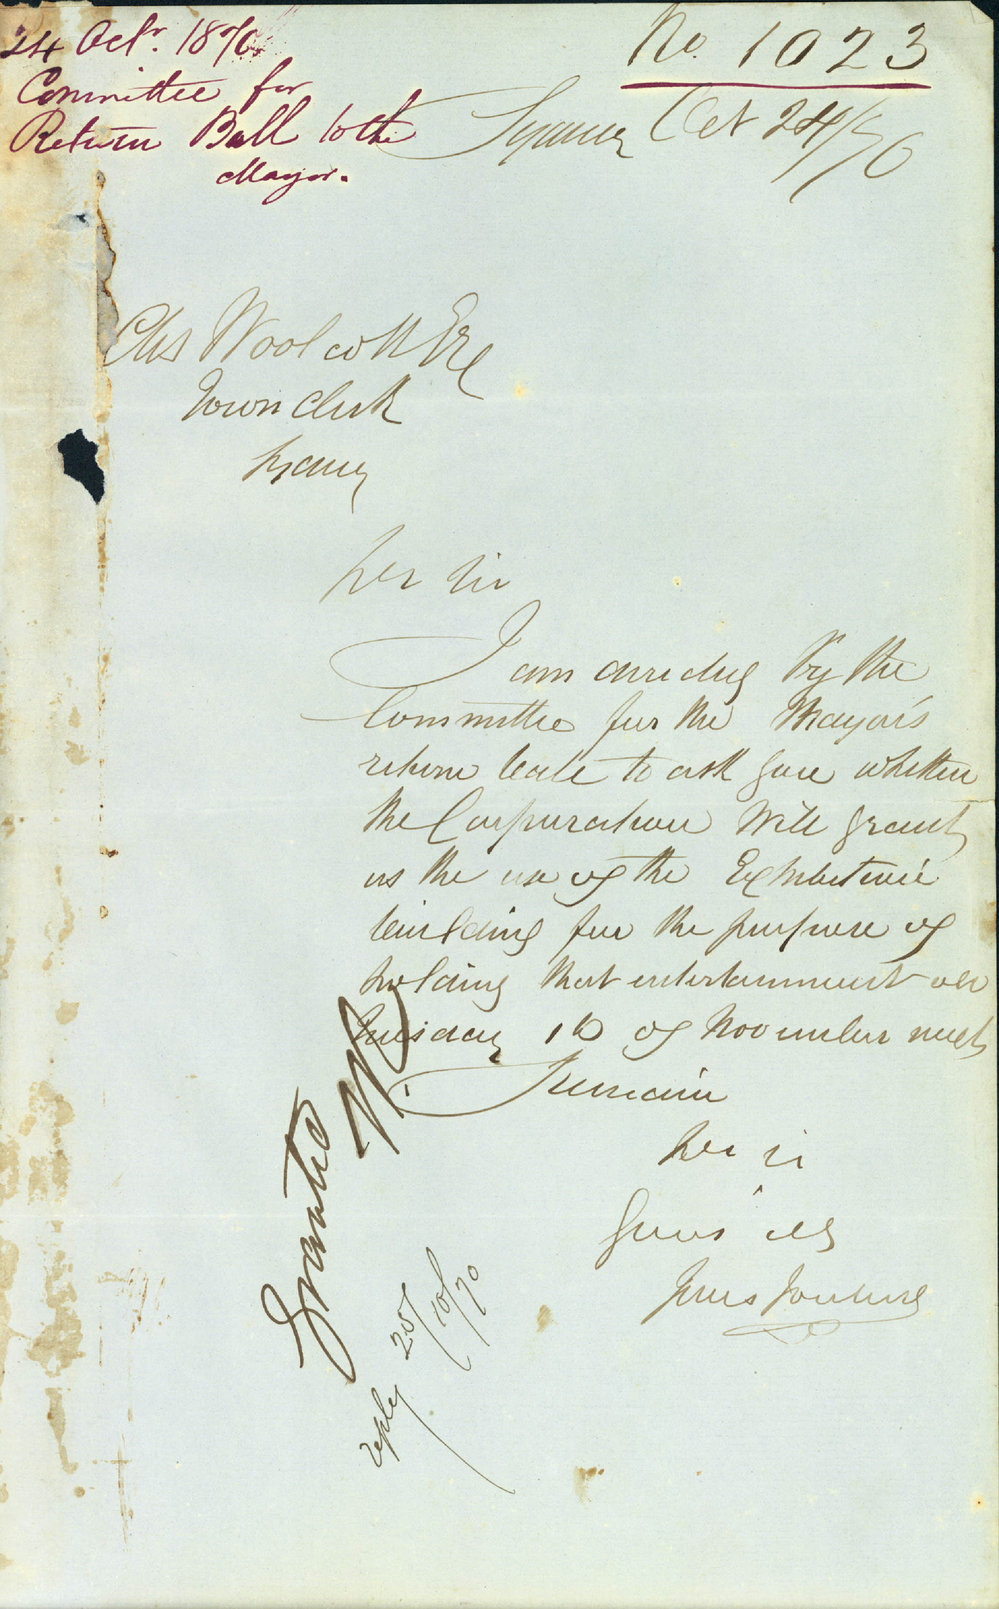 24 Octr. 1870
Committee for
Return Ball to the
Mayor.
No. 1023
Sydney Oct 24/70
Chs Woolcott Esq
Town Clerk
Sydney
Dear Sir
I am directed by the
Committee for the Mayor's
return ball to ask you whether
the Corporation will grant
us the use of the Exhibition
building for the purpose of
holding that entertainment on
Tuesday 1st of November next
I remain
Dear Sir
Yours
Jules Joubert
Granted
reply 25/10/70